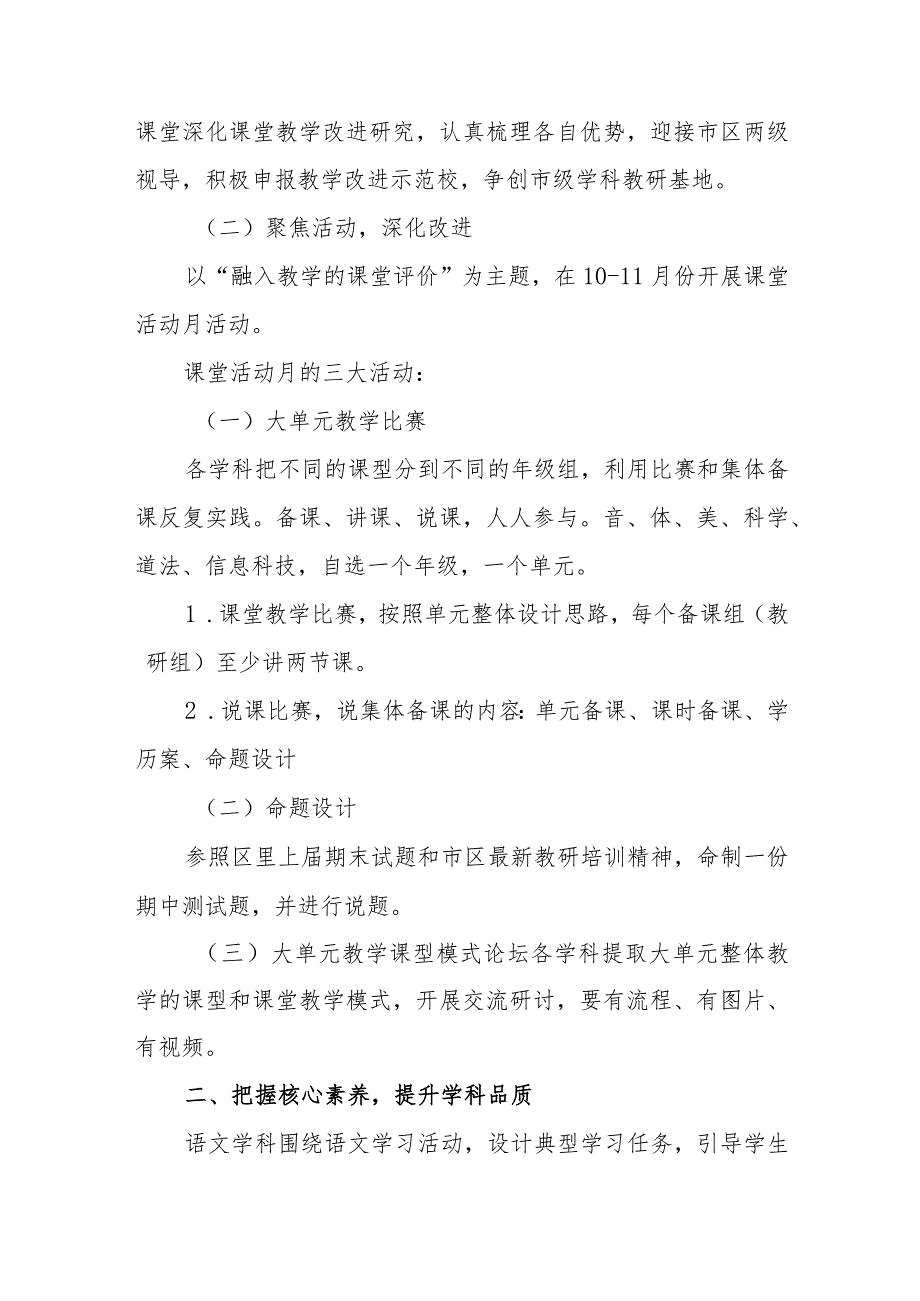 课堂深化课堂教学改进研究，认真梳理各自优势，迎接市区两级
视导，积极申报教学改进示范校，争创市级学科教研基地。
（二）聚焦活动，深化改进
以“融入教学的课堂评价”为主题，在 10-11 月份开展课堂
活动月活动。
课堂活动月的三大活动：
（一）大单元教学比赛
各学科把不同的课型分到不同的年级组，利用比赛和集体备
课反复实践。备课、讲课、说课，人人参与。音、体、美、科学、
道法、信息科技，自选一个年级，一个单元。
1 .课堂教学比赛，按照单元整体设计思路，每个备课组（教
研组）至少讲两节课。
2 .说课比赛，说集体备课的内容：单元备课、课时备课、学
历案、命题设计
（二）命题设计
参照区里上届期末试题和市区最新教研培训精神，命制一份
期中测试题，并进行说题。
（三）大单元教学课型模式论坛各学科提取大单元整体教
学的课型和课堂教学模式，开展交流研讨，要有流程、有图片、
有视频。
二、把握核心素养，提升学科品质
语文学科围绕语文学习活动，设计典型学习任务，引导学生